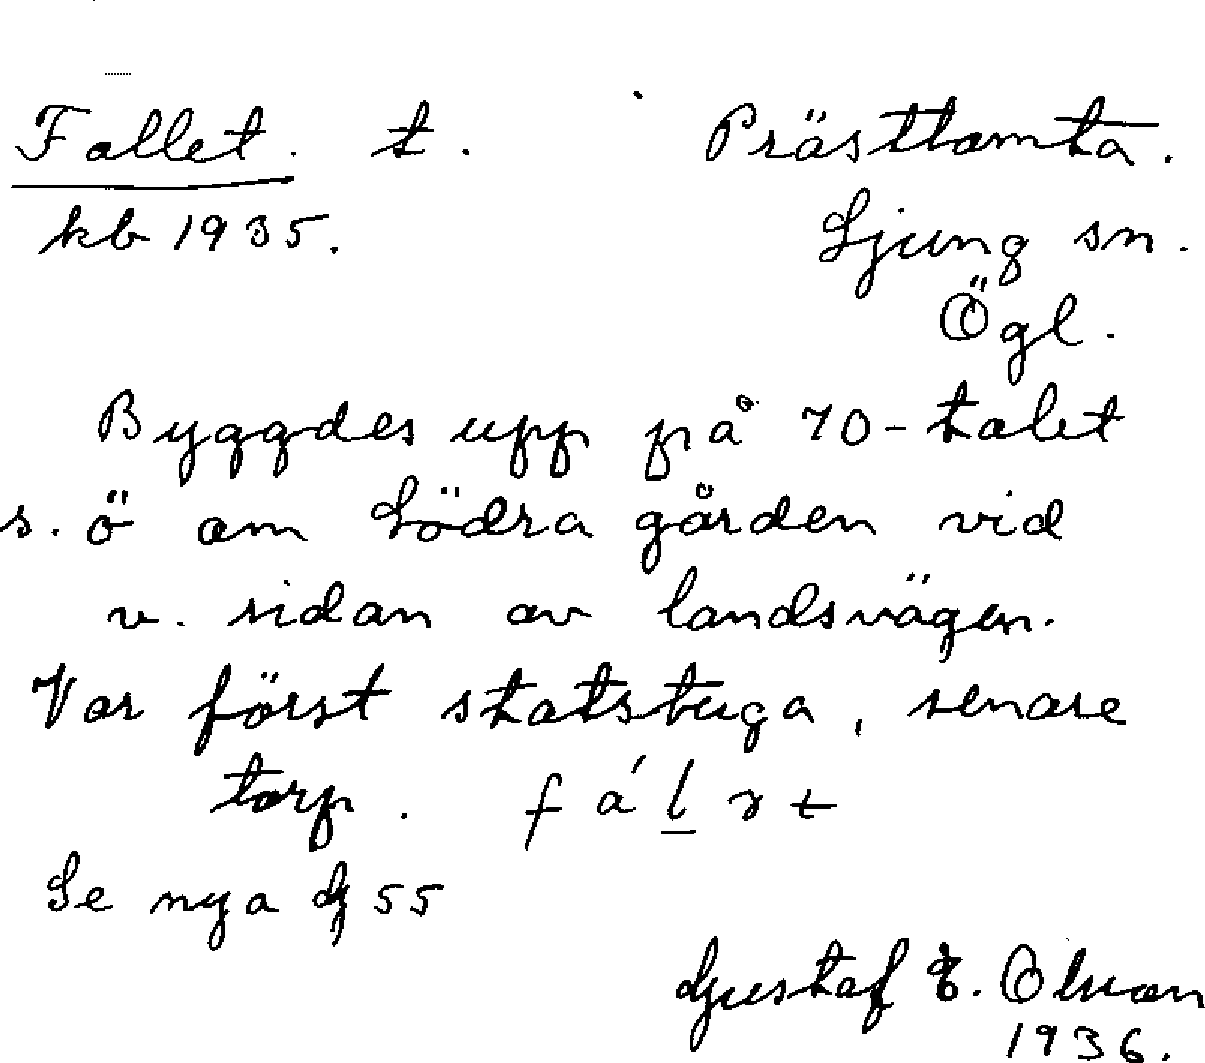 Fallet. t. Prästtomta.
kb 1935. Ljung sn.
Ögl.
Byggdes upp på 70-talet
s. ö om Södra gården vid
v. sidan av landsvägen.
Var först statstuga, senare
torp. fálrt
Se nya G 55
Gustaf E. Olsson
1936.